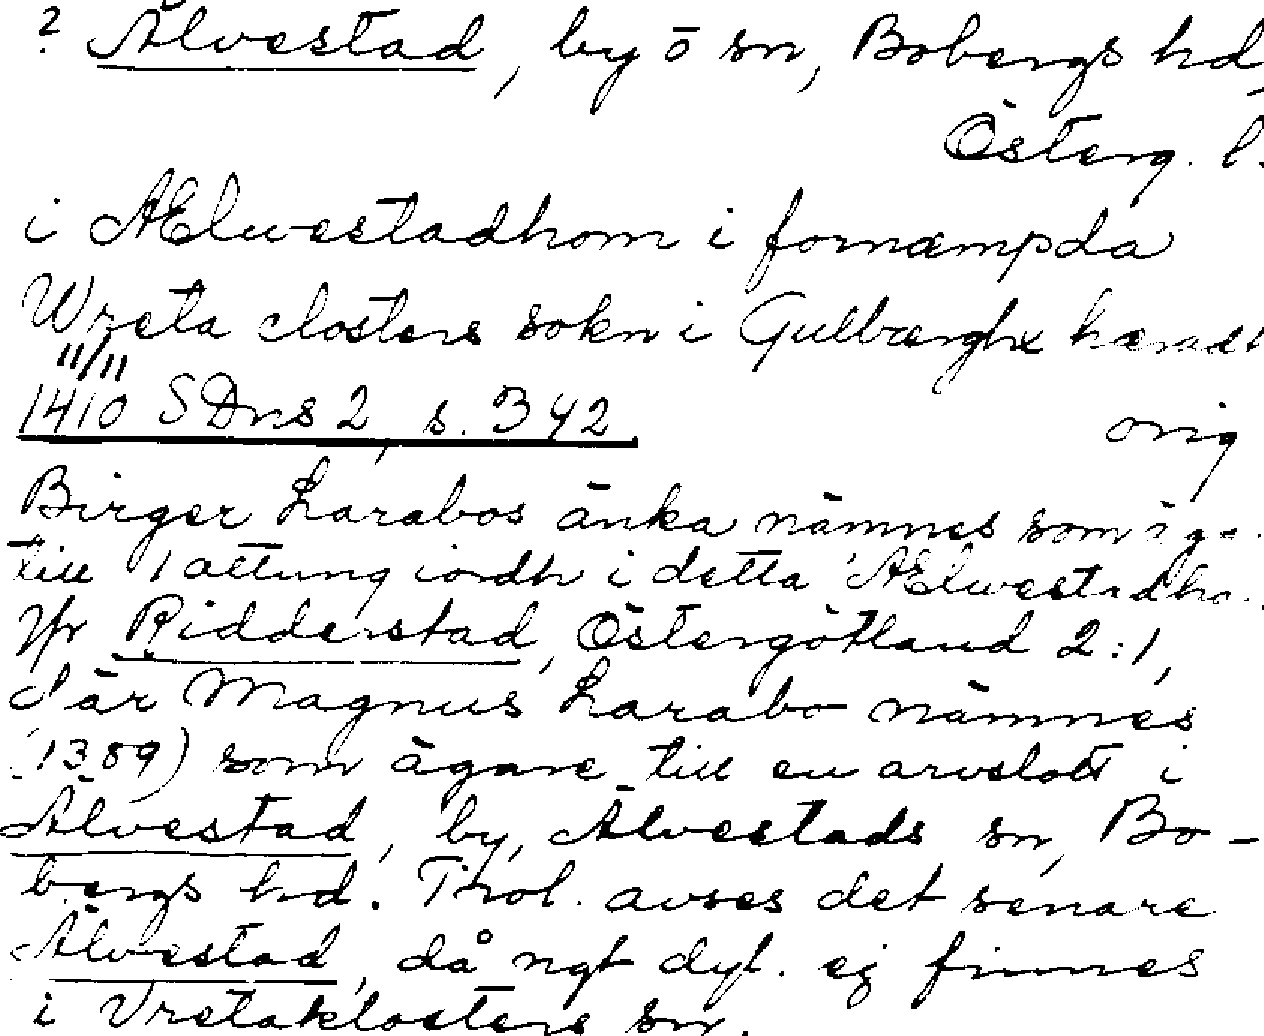 ? Älvestad, by o sn, Bobergs hd,
Österg. l.
i Ælwestadhom i fornæmpda
Wreta closters sokn i Gulbærghx hæradt
11/11
1410 SDns 2, s. 342 orig
Birger Larabos änka nämnes som
till 1 attung iordh i detta Ælwestadho
Jfr Ridderstad, Östergötland 2:1,
där Magnus Larabo nämnes
(1389) som ägare till en arvslott i
Älvestad, by, Älvestads sn, Bo-
bergs hd. Trol. avses det senare
Älvestad, då ngt dyl. ej finnes
i Vretaklosters sn.